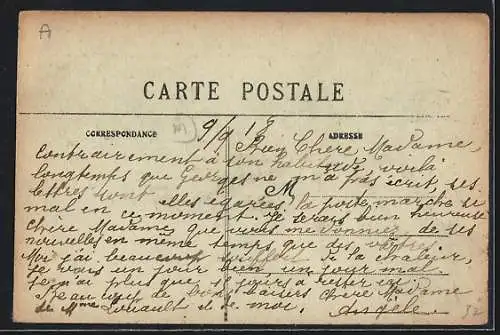 A
CARTE POSTALE
CORRESPONDANCE
ADRESSE
M
9/9 18
Chère Madame,
Contrairement à son habitude voilà
longtemps que Georges ne m'a pas écrit, ses
lettres sont elles égarées, la poste marche si
mal en ce moment. Je serais bien heureuse
chère Madame que vous me donniez de ses
nouvelles en même temps que des vôtres.
Moi j'ai beaucoup souffert de la chaleur,
je vais un jour bien, un jour mal.
je n'ai plus que jours à rester ici
Beaucoup de bons baisers chère Madame
de Mme et de moi. Angèle